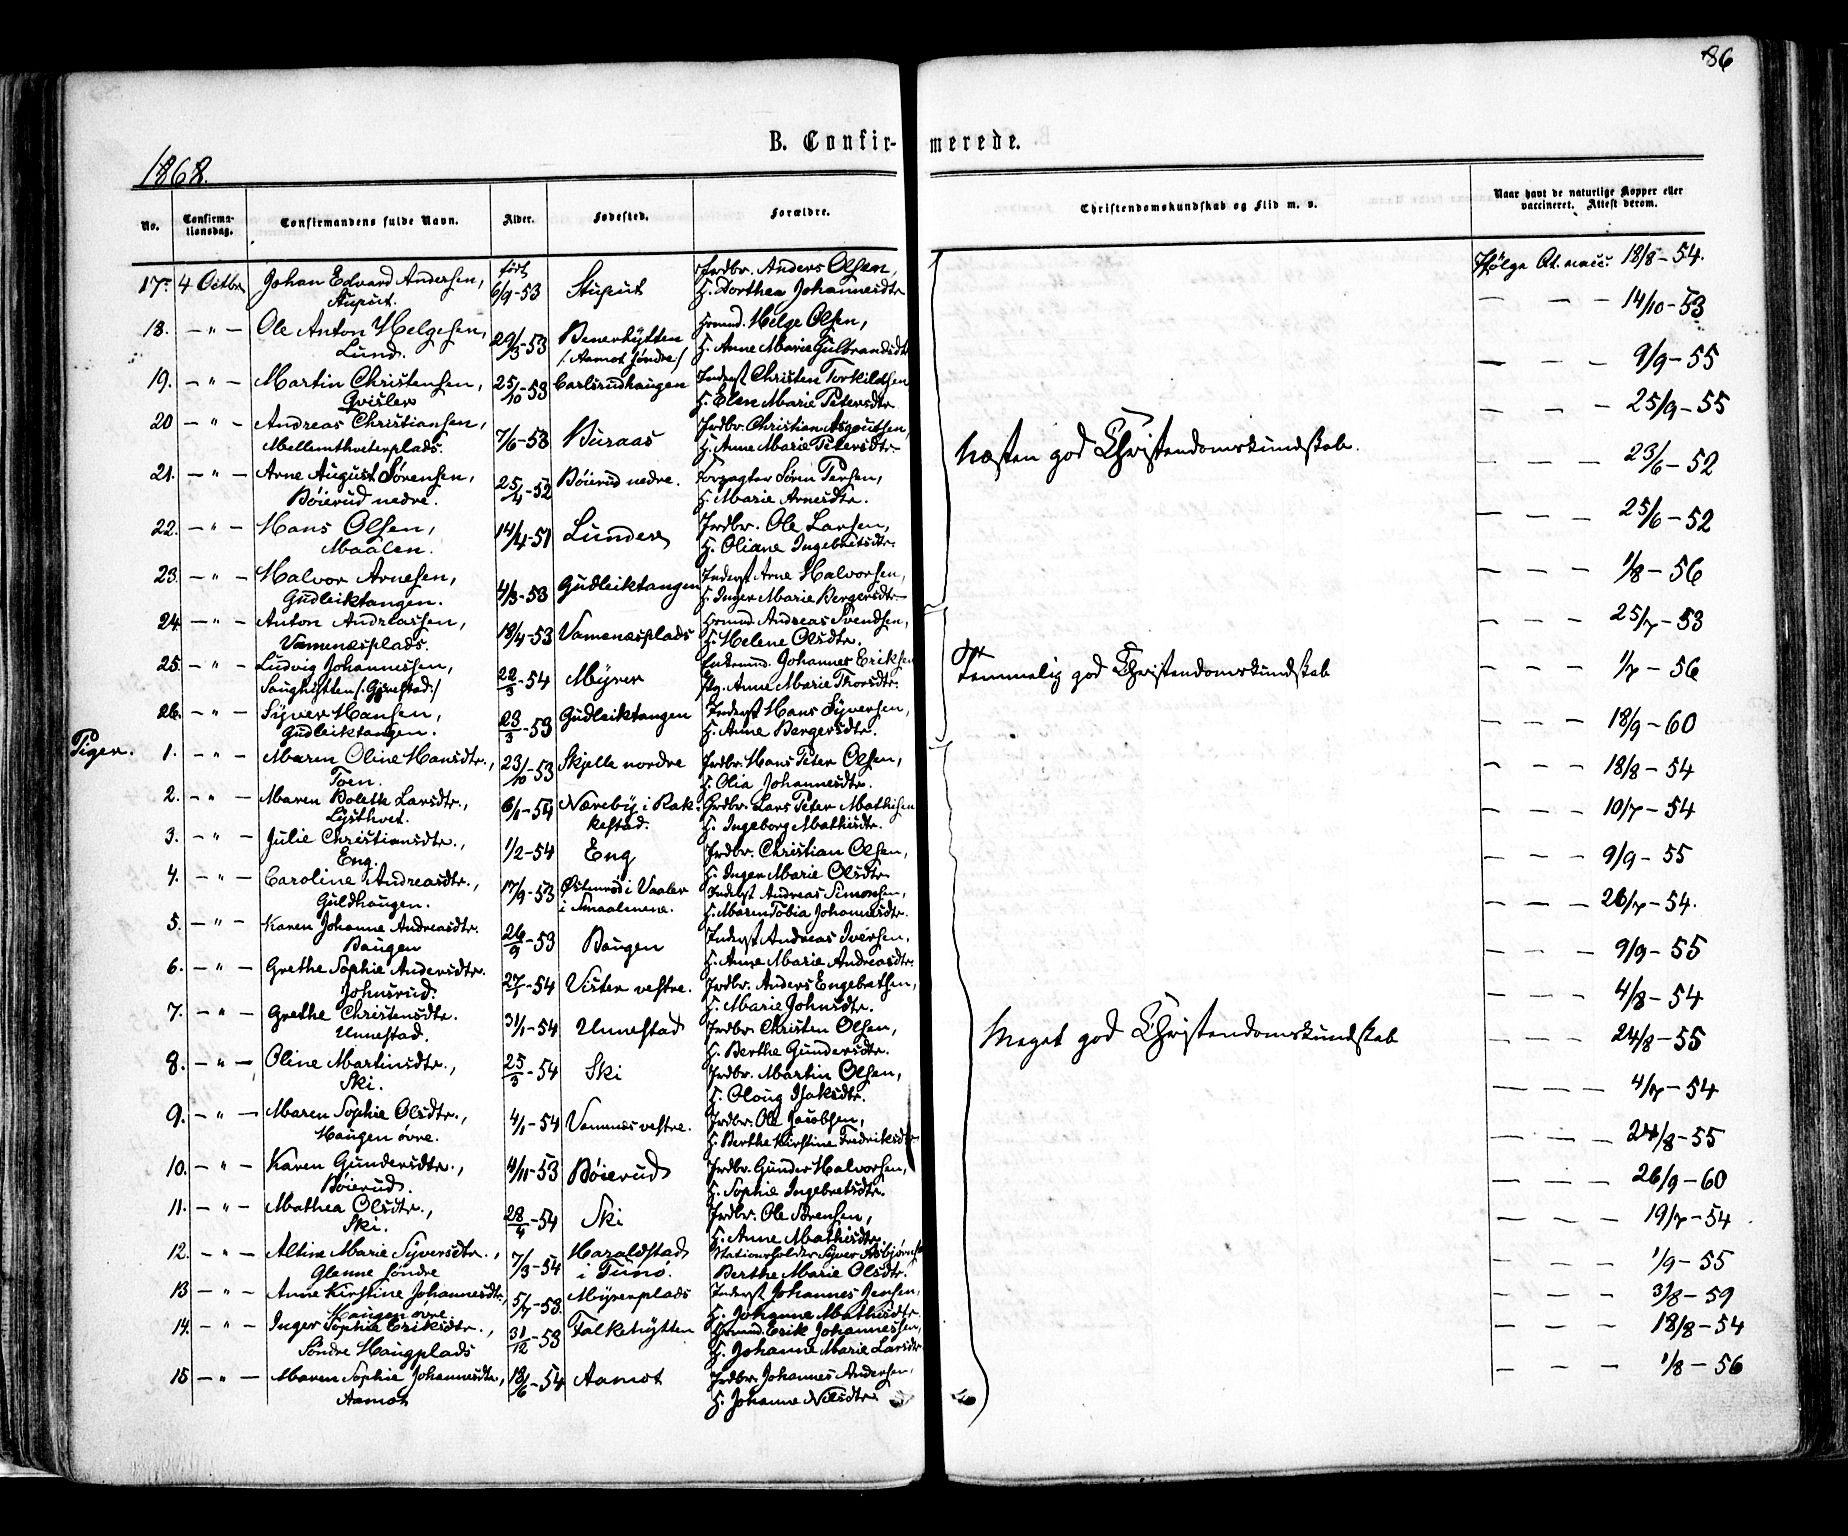 86
B. Confirmerede.
1868.
No.
Confirmationsdag.
Confirmandens fulde Navn.
Alder.
Fødested.
Forældre.
Christendomskundskab og Flid m. v.
Naar havt de naturlige Kopper eller vaccineret. Attest derom.
17. 4 Octbr Johan Edvard Andersen, født 6/9-53 Stuput Grdbr. Anders Olsen, 18/8-54.
Stuput. H. Dorthea Johannesdtr
18. - " - Ole Anton Helgesen, 29/3-53 Benerhytten Huusmd. Helge Olsen, 14/10-53
Lund. /Aamot søndre/ H. Anne Marie Gulbrandsdtr
19. - " - Martin Christensen, 25/10-53 Carlsrudhaugen Inderst Christen Torkildsen 9/9-55
Gvisler H. Elen Marie Petersdtr
20 - " - Andreas Christiansen, 7/6-53 Buraas Grdbr. Christian Asgoutsen, 25/9-55
Mellemthveterplads. H. Anne Marie Petersdtr
21. - " - Arne August Sørensen, 25/4-52 Bøierud nedre. Forpagter Søren Persen, 23/6-52
Bøierud nedre. H. Marie Arnesdtr.
22. - " - Hans Olsen, 14/4-51 Lundere Grdbr. Ole Larsen, 25/6-52
Maalen. H. Oliane Ingebretsdtr.
23. - " - Halvor Arnesen, 4/3-53 Gudleiktangen Inderst Arne Halvorsen, 1/8-56
Gudleiktangen. H. Inger Marie Bergersdtr.
Næsten god Christendomskundskab.
24 - " - Anton Andreassen, 18/4-53 Vamenæsplads Huusmd. Andreas Svendsen, 25/7-53
Vamenæsplads. H. Helene Olsdtr.
25. - " - Ludvig Johannessen, 22/3-54 Myrer Johannes Eriksen 1/7-56
Anne Marie Thorsdtr.
26. - " - Syver Hansen, 23/3-53 Gudleiktangen Inderst Hans Syversen, 18/9-60
Gudleiktangen. H. Anne Bergersdtr.
Temmelig god Christendomskundskab
Piger.
1. - " - Maren Oline Hansdtr., 23/10-53 Skjelle nordre Grdbr. Hans Peter Olsen, 18/8-54
Toen. H. Olia Johannesdtr.
2. - " - Maren Boleth Larsdtr., 6/1-54 Næreby i Rak- Grdbr. Lars Peter Mathisen 10/7-54
Lysthvet. kestad. H. Ingeborg Mathisdtr.
3. - " - Julie Christiansdtr., 1/2-54 Eng Grdbr. Christian Olsen, 9/9-55
Eng. H. Inger Marie Olsdtr.
4. - " - Caroline Andreasdtr., 17/9-53 Østenrød i Vaaler Inderst Andreas Simonsen, 26/7-54.
Guldhaugen. i Smaalenene. H. Maren Tobia Johannesdtr.
5. - " - Karen Johanne Andreasdtr. 26/9-53 Baugen Inderst Andreas Iversen, 9/9-55
Baugen H. Anne Marie Andreasdtr.
6. - " - Grethe Sophie Andersdtr. 27/1-54 Vister vestre. Grdbr. Anders Engebretsen, 4/8-54
Johnsrud. H. Marie Johnsdtr.
7. - " - Grethe Christensdtr. 31/1-54 Unnestad Grdbr. Christen Olsen, 24/8-55
Unnestad. H. Berthe Gundersdtr.
8. - " - Oline Martinsdtr., 25/3-54 Ski Grdbr. Martin Olsen, 4/7-54
Ski. H. Oloug Isaksdtr.
9. - " - Maren Sophie Olsdtr., 4/1-54 Vamnæs vestre. Grdbr. Ole Jacobsen, 24/8-55
Haugen øvre. H. Berthe Kirstine Fredriksdtr
10. - " - Karen Gundersdtr., 4/11-53 Bøierud Grdbr. Gunder Halvorsen, 26/9-60
Bøierud. H. Sophie Ingebretsdtr.
11. - " - Mathea Olsdtr., 28/4-54 Ski Grdbr. Ole Sørensen, 19/7-54
Ski. H. Anne Mathisdtr.
12. - " - Altine Marie Syversdtr., 7/3-54 Haraldstad Stationsholder Syver Asbjørnsen 1/9-55
Glenne søndre i Tunø. Berthe Marie Olsdtr.
13 - " - Anne Kirstine Johannesdtr., 5/7-53. Myrerplads Inderst Johannes Jensen, 3/8-59
Haugen øvre. H. Johanne Mathisdtr
14. - " - Inger Sophie Eriksdtr., 31/12-53 Falkehytten Huusmd. Erik Johannessen, 18/8-54
Søndre Haugplads H. Johanne Marie Larsdtr
15 - " - Maren Sophie Johannesdtr., 18/6-54 Aamot Grdbr. Johannes Andersen, 1/8-56
Aamot H. Johanne Nilsdtr
Meget god Christendomskundskab